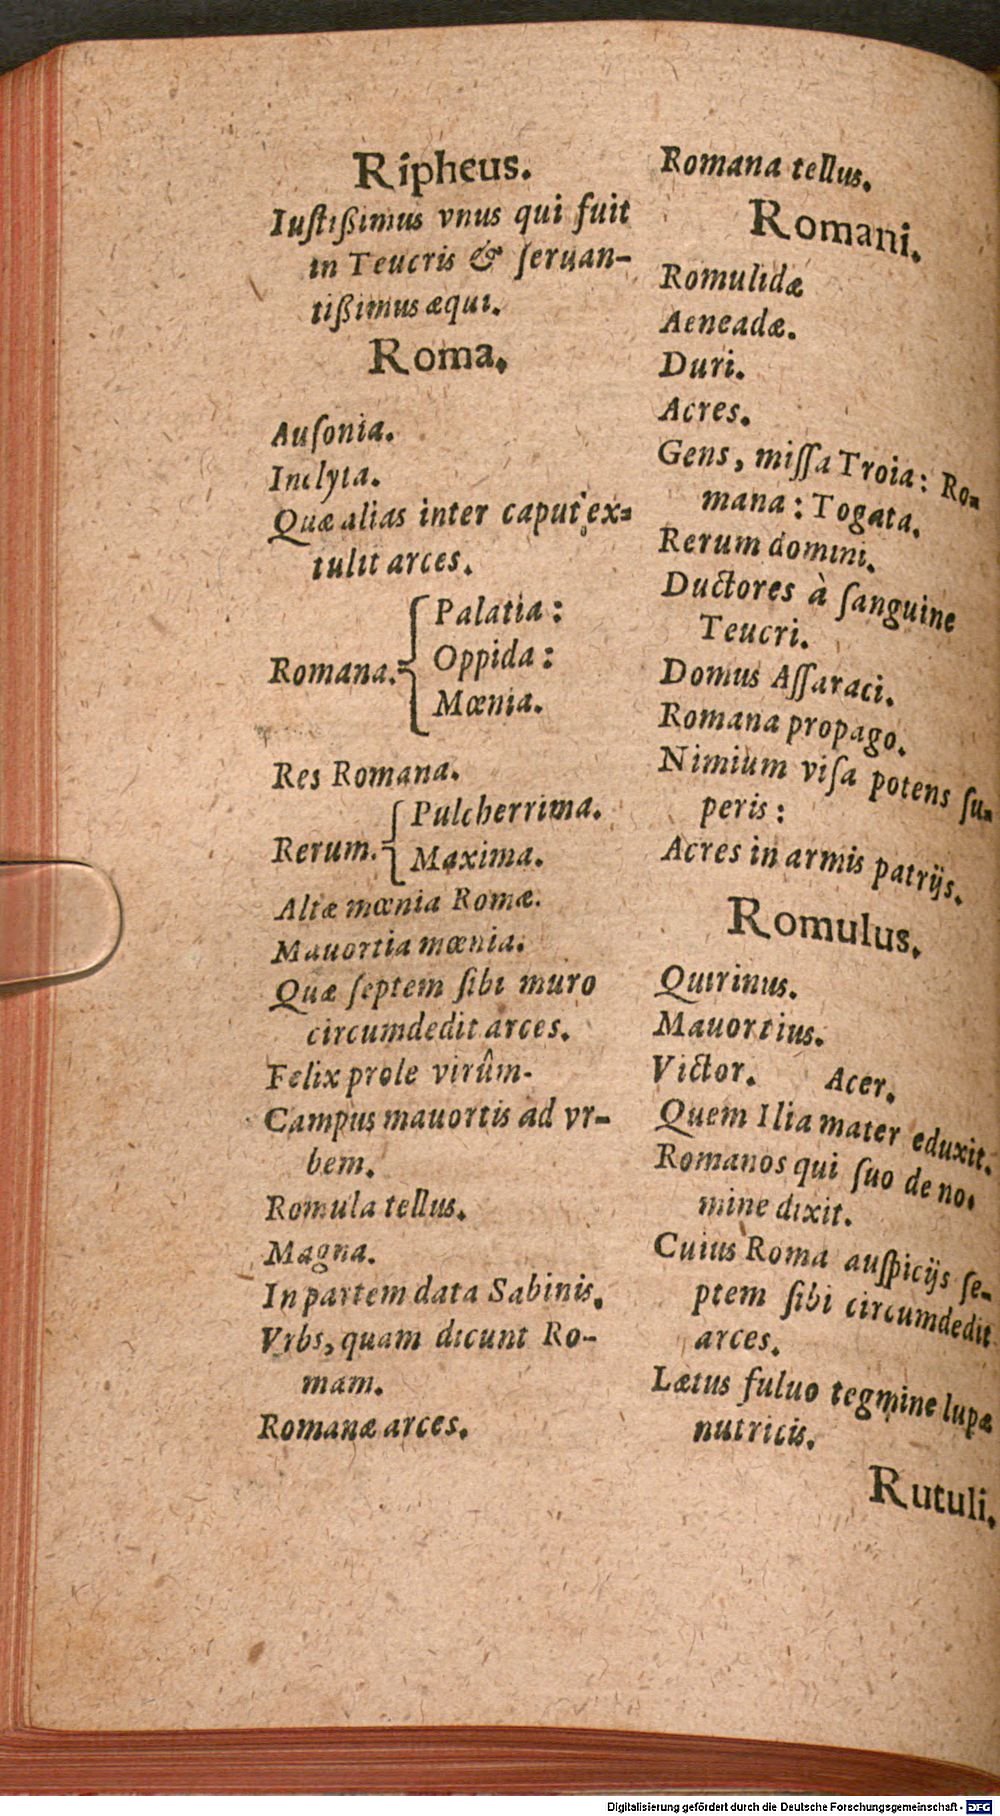 Ripheus.
Iuſtißimus vnus qui fuit
in Teucris & ſeruan-
tißimus æqui.
Roma.
Auſonia.
Inclyta.
Quæ alias inter caput ex-
tulit arces.
Palatia:
Romana. Oppida:
Mœnia.
Res Romana.
Pulcherrima.
Rerum. Maxima.
Altæ mœnia Romæ.
Mauortia mœnia.
Quæ ſeptem ſibi muro
circumdedit arces.
Felix prole virûm.
Campus mauortis ad vr-
bem.
Romula tellus.
Magna.
In partem data Sabinis.
Vrbs, quam dicunt Ro-
mam.
Romanæ arces.
Romana tellus.
Romani.
Romulidæ
Aeneadæ.
Duri.
Acres.
Gens, miſſa Troia: Ro-
mana: Togata.
Rerum domini.
Ductores à ſanguine
Teucri.
Domus Aſſaraci.
Romana propago.
Nimium viſa potens ſu-
peris:
Acres in armis patrijs.
Romulus.
Quirinus.
Mauortius.
Victor. Acer.
Quem Ilia mater eduxit.
Romanos qui ſuo de no-
mine dixit.
Cuius Roma auſpicijs ſe-
ptem ſibi circumdedit
arces.
Lætus fuluo tegmine lupæ
nutricis.
Rutuli.
Digitalisierung gefördert durch die Deutsche Forschungsgemeinschaft - DFG